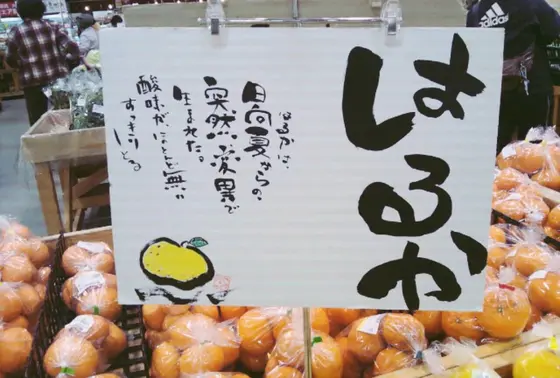 はるか
はるかは、
日向夏からの、
突然変異で
生まれた。
酸味がほとんど無い
すっきりしとる
adidas